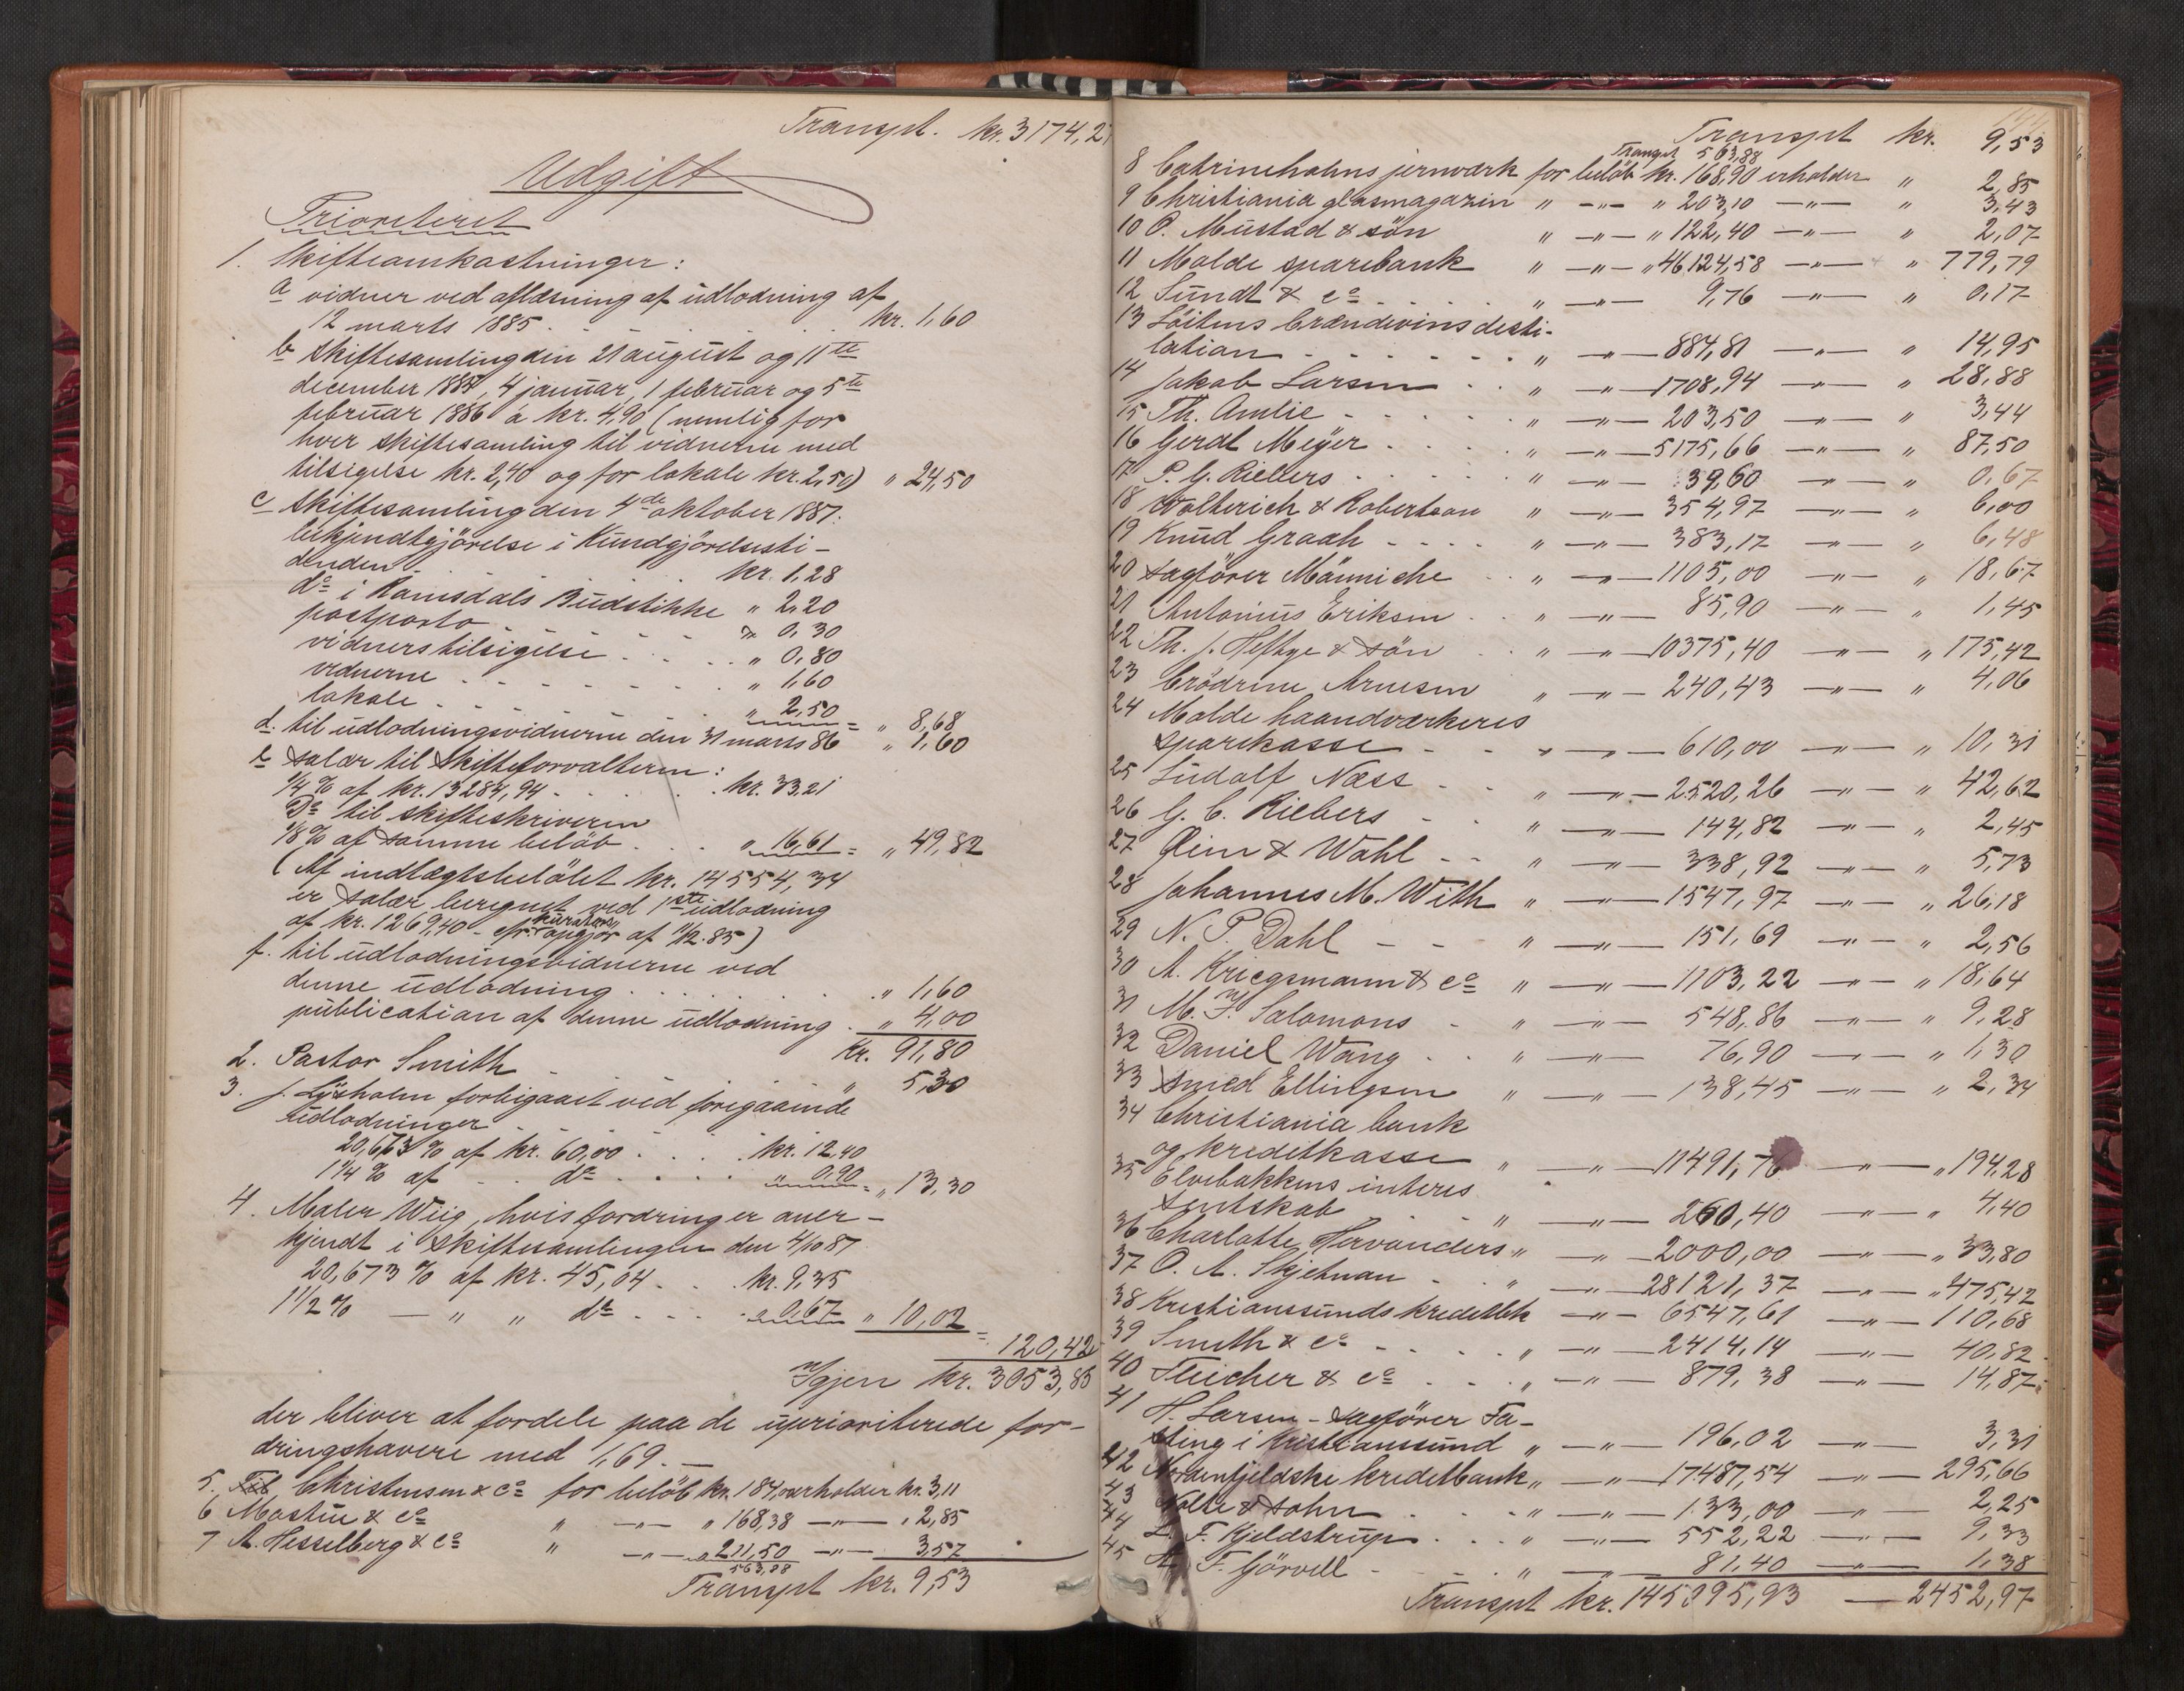 Transpt. kr. 3174,27
Udgift
Prioriteret
1. Skifteomkostninger:
a vidner ved aflæsning af udlodning af
12 marts 1885 . . . . . . . kr. 1,60
b skiftesamling den 21 august og 11te
december 1885, 4 januar, 1 februar og 5te
februar 1886 à kr. 4,90 (nemlig for
hver skiftesamling til vidnerne med
tilsigelse kr. 2,40 og for lokale kr. 2,50) " 24,50
c skiftesamling den 4de oktober 1887:
bekjendtgjörelse i Kundgjörelsesti-
denden . . . kr. 1,28
do i Romsdals Budstikke " 2,20
postporto . . . " 0,30
vidners tilsigelse . . . . " 0,80
vidnerne . . . . . . " 1,60
lokale . . . . . . " 2,50 = " 8,68
d. til udlodningsvidnerne den 31 marts 86 " 1,60
e salær til skifteforvalteren:
1/4 % af kr. 13284,94 . . . . kr. 33,21
Do til skifteskriveren
1/8 % af samme belöb . . . " 16,61 = " 49,82
(Af indtægtsbelöbet kr. 14554,34
er salær beregnet ved 1ste udlodning
af kr. 1269,40 - cfr. kurators opgjör af 1/12. 85)
f. til udlodningsvidnerne ved
denne udlodning . . . . . . " 1,60
publication af denne udlodning . " 4,00
Kr. 91,80
2. Pastor Smith . . . . . " 5,30
3. J. Lysholm forbigaaet ved foregaaende
udlodninger
20,673 % af kr. 60,00 . . . kr. 12,40
1 1/4 % af . . do . . . . " 0,90 = " 13,30
4. Maler Wiig, hvis fordring er aner-
kjendt i skiftesamlingen den 4/10 87
20,673 % af kr. 45,04 . . kr. 9,35
1 1/2 % — " " do . . . . " 0,67 " 10,02 =
120,42
Igjen kr. 3053,85
der bliver at fordele paa de uprioriterede for-
dringshavere med 1,69. —
5. Christensen & co for belöb kr. 184,00 erholder kr. 3,11
6 Mostue & co " —"— " 168,38 —"— " 2,85
7 A. Hesselberg & co " —"— " 211,50 —"— 3,57
563,88
Transpt kr. 9,53
Transpt kr. 9,53
Transpt 563,88
8 Catrineholms jernværk for belöb kr. 168,90 erholder " 2,85
9 Christiania glasmagazin " —"— " 203,10 —"— " 3,43
10 O. Mustad & sön " —"— " 122,40 —"— " 2,07
11 Molde sparebank " —"— " 46124,58 —"— " 779,79
12 Sundt & co . . . . " —"— 9,76 —"— " 0,17
13 Löitens brændevinsdesti-
lation . . . . . . " —"— 884,81 —"— " 14,95
14 Jakob Larsen . . " —"— 1708,94 —"— " 28,88
15 Th. Amlie . . . . " —"— 203,50 —"— " 3,44
16 Gerdt Meyer . . . . " —"— 5175,66 —"— " 87,50
17 P. G. Riebers . . . . " —"— 39,60 —"— " 0,67
18 Wolterich & Robertson " —"— 354,97 —"— " 6,00
19 Knud Graah . . . . " —"— 383,17 —"— " 6,48
20 Sagförer Männiche . . " —"— 1105,00 —"— " 18,67
21 Antonius Eriksen . . " —"— 85,90 —"— " 1,45
22 Th. J. Heftye & sön . . " —"— 10375,40 —"— " 175,42
23 Brödrene Arnesen " —"— 240,43 —"— " 4,06
24 Molde haandværkeres
sparekasse . . . " —"— 610,00 —"— " 10,31
25 Ludolf Næss . . . " —"— 2520,26 —"— " 42,62
26 G. C. Riebers . . " —"— 144,82 —"— " 2,45
27 Oien & Wahl . . " —"— 338,92 —"— " 5,73
28 Johannes M. With " —"— 1547,97 —"— " 26,18
29 N. P. Dahl — - " —"— 151,69 —"— " 2,56
30 A. Kriegsmann & co " —"— 1103,22 —"— " 18,64
31 M. I. Salomons . " —"— 548,86 —"— " 9,28
32 Daniel Wang . . " —"— 76,90 —"— " 1,30
33 Smed Ellingsen " —"— 138,45 —"— " 2,34
34 Christiania bank
og kreditkasse " —"— 11491,76 —"— " 194,28
35 Elvebakkens interes-
sentskab . . . " —"— 260,40 —"— " 4,40
36 Charlotte Hervanders " —"— 2000,00 —"— " 33,80
37 O. A. Skjelnan . . " —"— 28121,37 —"— " 475,42
38 Kristianssunds kreditbk —"— 6547,61 —"— 110,68
39 Smith & co . . . . " —"— 2414,14 —"— 40,82
40 Fleicher & co . . . " —"— 879,38 —"— 14,87
41 H. Larsen - sagförer Fa-
sting i Kristianssund " —"— 196,02 —"— 3,31
42 Nordenfjeldske kreditbank " —"— 17487,54 —"— 295,66
43 Nolte & sohn . . . " —"— 133,00 —"— 2,25
44 L. F. Kjeldstrup . . . " —"— 552,22 —"— 9,33
45 F. Görvell . . . . " —"— 81,40 —"— 1,38
Transpt kr. 145395,93 — 2452,97